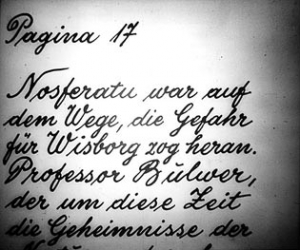 Pagina 17
Nosferatu war auf
dem Wege, die Gefahr
für Wisborg zog heran.
Professor Bulwer,
der um diese Zeit
die Geheimnisse der